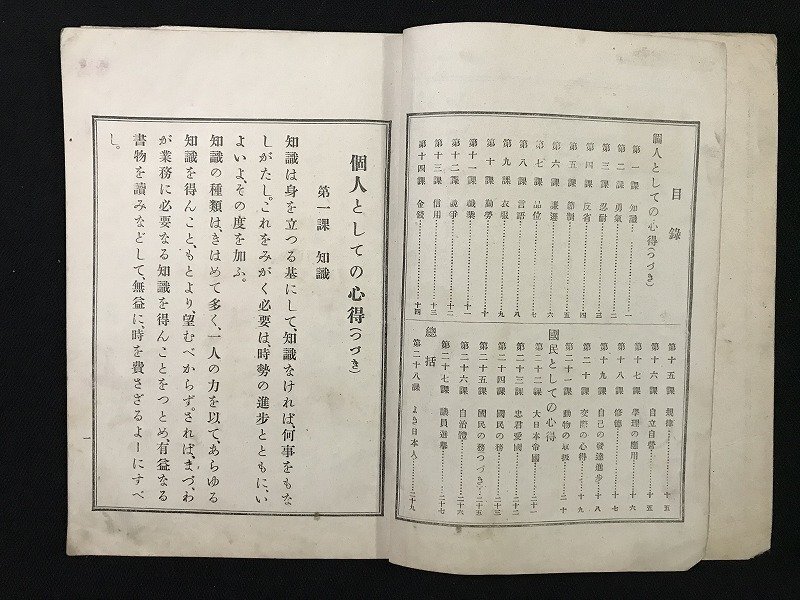 目錄
個人としての心得(つづき)
第一課 知識………一
第二課 勇氣………二
第三課 忍耐………三
第四課 反省………四
第五課 節制………五
第六課 謙遜………六
第七課 品位………七
第八課 言語………八
第九課 衣服………九
第十課 勤勞………十
第十一課 職業………十一
第十二課 競爭………十二
第十三課 信用………十三
第十四課 金錢………十四
第十五課 規律………十五
第十六課 自立自營………十五
第十七課 學理の應用………十六
第十八課 修德………十七
第十九課 自己の發達進步………十八
第二十課 交際の心得………十九
第二十一課 動物の取扱………二十
國民としての心得
第二十二課 大日本帝國………二十一
第二十三課 忠君愛國………二十二
第二十四課 國民の務………二十三
第二十五課 國民の務(つづき)………二十五
第二十六課 自治體………二十六
第二十七課 議員選擧………二十七
總括
第二十八課 よき日本人………二十九
個人としての心得(つづき)
第一課 知識
知識は身を立つる基にして、知識なければ、何事をもな
しがたし。これをみがく必要は、時勢の進步とともに、い
よいよ、その度を加ふ。
知識の種類は、きはめて多く、一人の力を以て、あらゆる
知識を得んこと、もとより、望むべからず。されば、まづ、わ
が業務に必要なる知識を得んことをつとめ、有益なる
書物を讀みなどして、無益に、時を費さざるよーにすべ
し。
一